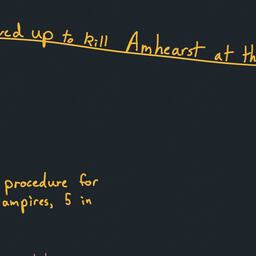 ved up to kill Amhearst at th
procedure for
ampires, 5 in